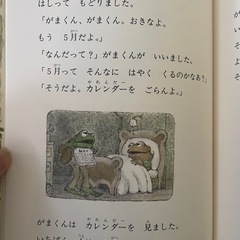 はしって もどりました。
「がまくん、がまくん。おきなよ。
もう 5月だよ。」
「なんだって?」がまくんが いいました。
「5月って そんなに はやく くるのかなあ?」
「そうだよ。カレンダーを ごらんよ。」
がまくんは カレンダーを 見ました。